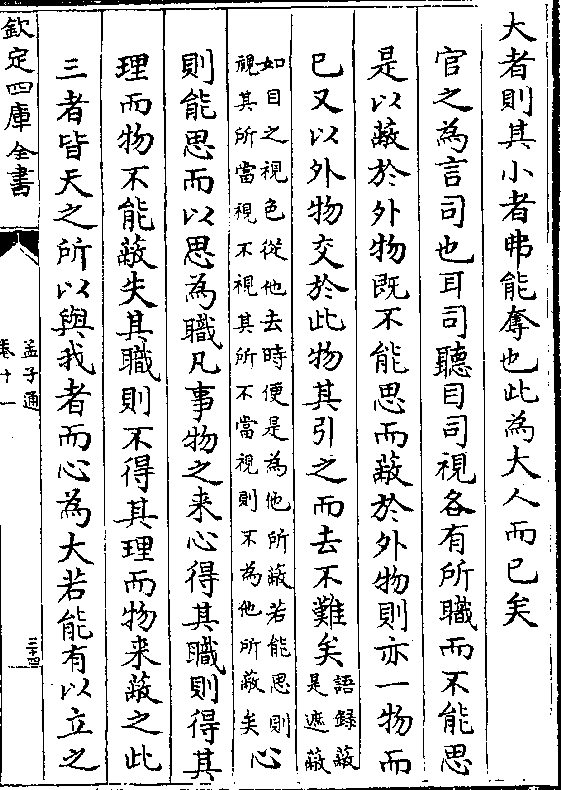 大者則其小者弗能奪也此為大人而已矣
官之為言司也耳司聽目司視各有所職而不能思
是以蔽於外物既不能思而蔽於外物則亦一物而
已又以外物交於此物其引之而去不難矣語錄蔽是遮蔽
如目之視色從他去時便是為他所蔽若能思則視其所當視不視其所不當視則不為他所蔽矣心
則能思而以思為職凡事物之来心得其職則得其
理而物不能蔽失其職則不得其理而物来蔽之此
三者皆天之所以與我者而心為大若能有以立之
欽定四庫全書
孟子通
卷十一
三十四